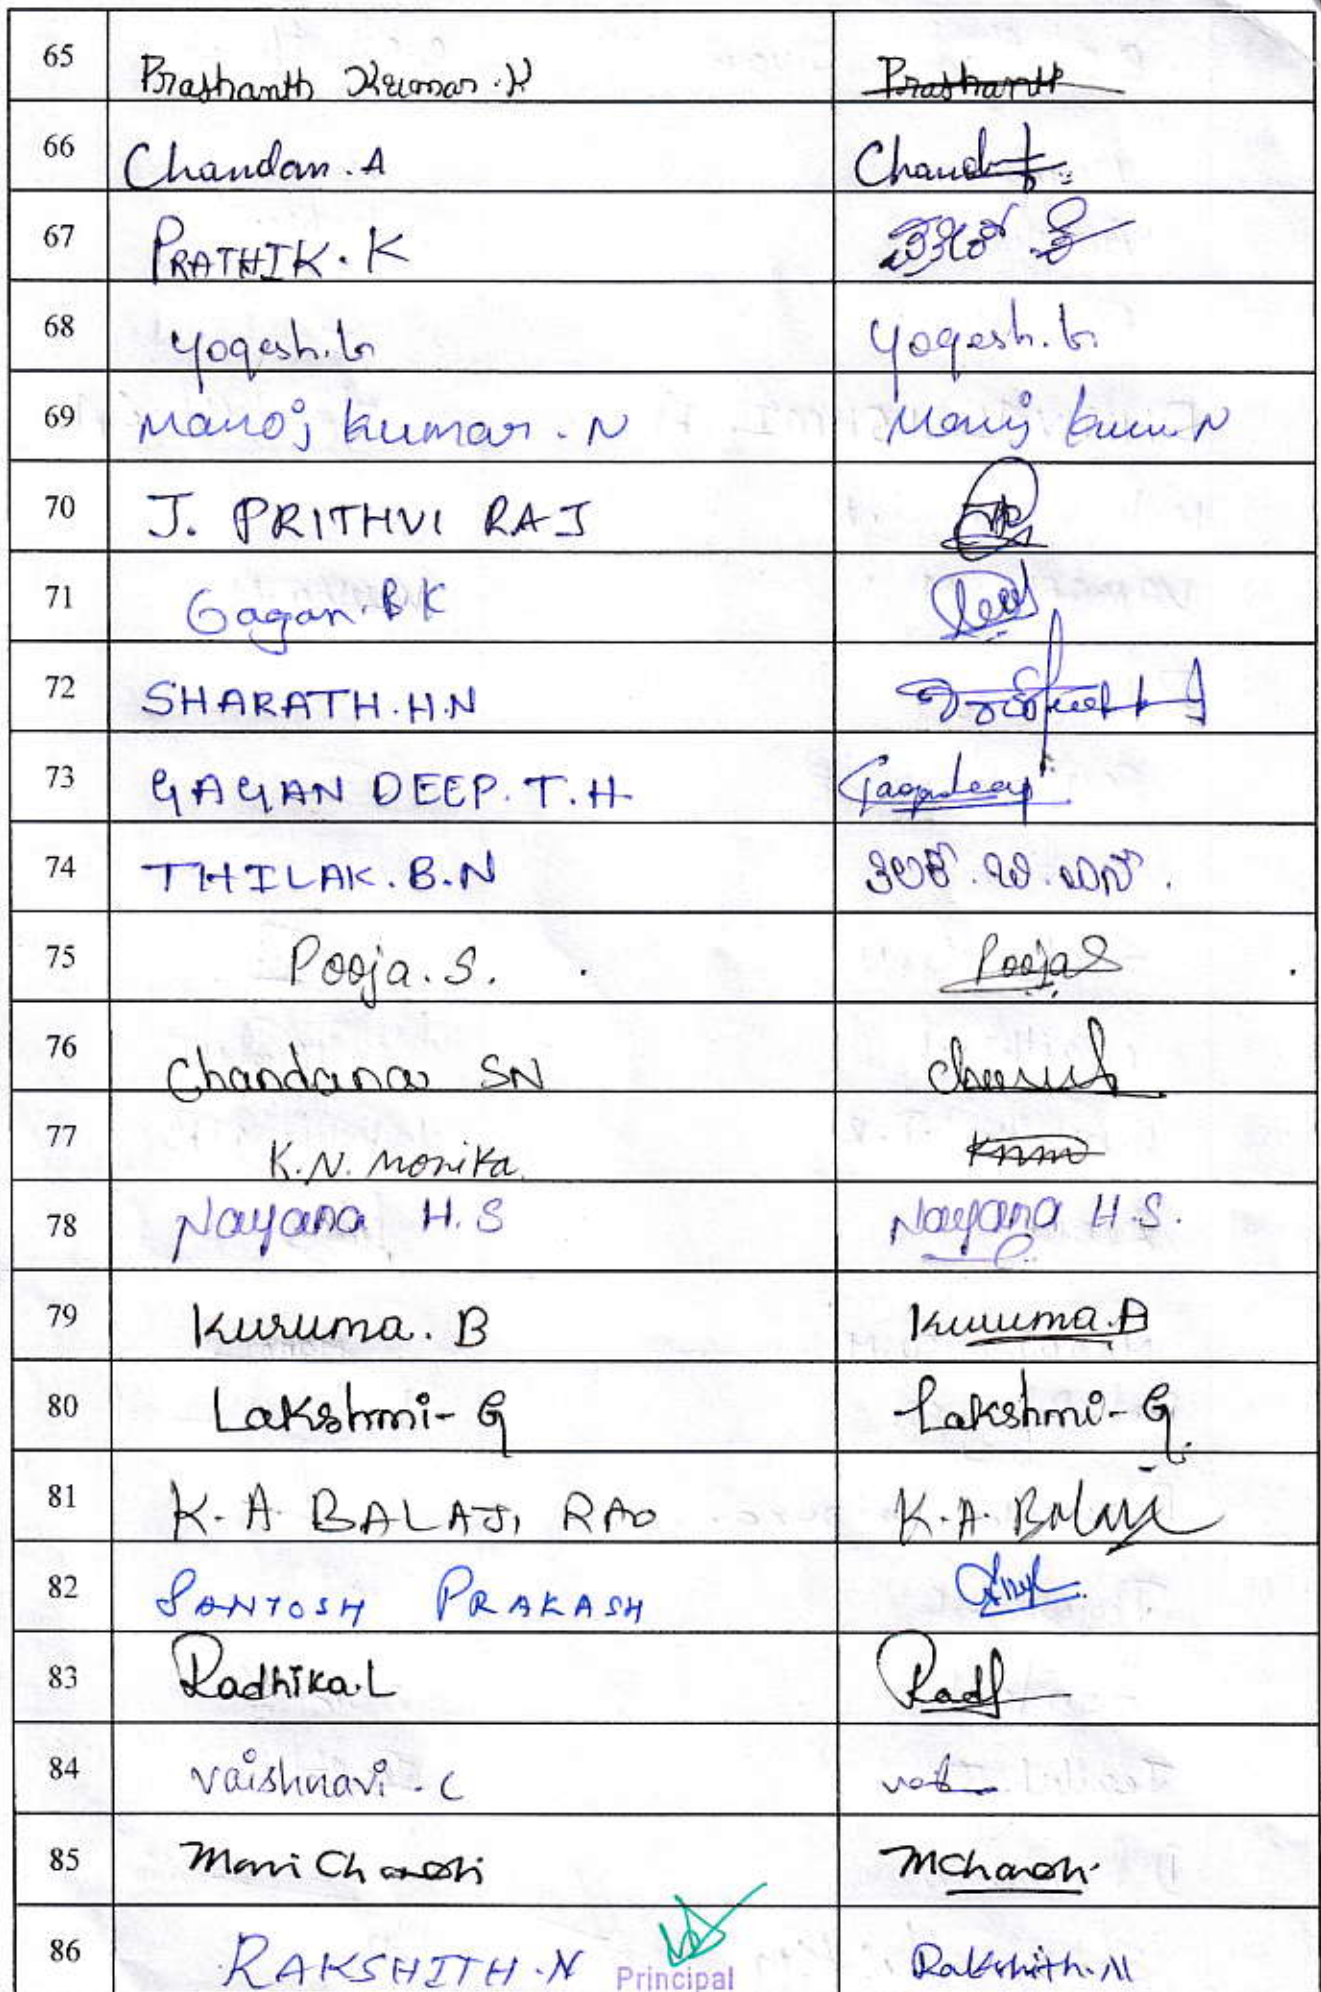 65 Prashanth Kumar.K Prashanth
66 Chandan.A
67 PRATHIK.K
68 Yogesh.G Yogesh.G
69 Manoj Kumar.N
70 J. PRITHVI RAJ
71 Gagan.B K
72 SHARATH.H.N
73 GAGAN DEEP.T.H. Gagandeep
74 THILAK.B.N ತಿಲಕ್.ಬಿ.ಎನ್.
75 Pooja.S. Pooja S
76 Chandana SN
77 K.N. Monika
78 Nayana H.S Nayana H.S.
79 Kuruma.B Kuruma.B
80 Lakshmi-G Lakshmi-G
81 K.A. BALAJI RAO K.A. Balaji
82 SANTOSH PRAKASH
83 Radhika.L
84 Vaishnavi.C
85 Mani Chandi
86 RAKSHITH.N Rakshith.N
Principal